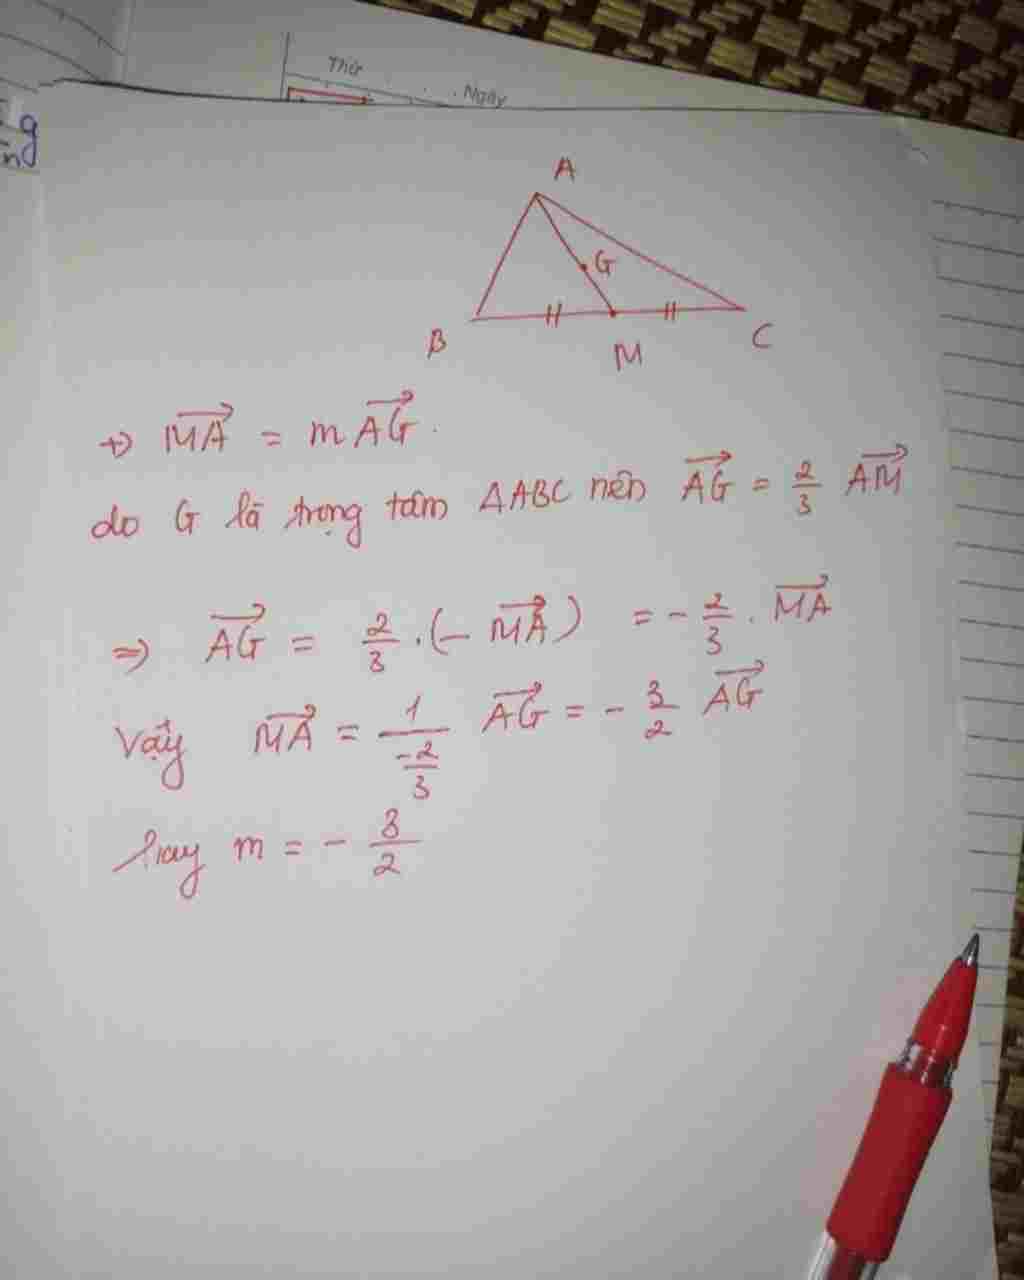 Thứ
Ngày
g
n
A
G
B
M
C
+) $\overrightarrow{MA} = m\overrightarrow{AG}$.
do G là trọng tâm ΔABC nên $\overrightarrow{AG} = \frac{2}{3} \overrightarrow{AM}$
⇒ $\overrightarrow{AG} = \frac{2}{3} \cdot (-\overrightarrow{MA}) = -\frac{2}{3} \cdot \overrightarrow{MA}$
Vậy $\overrightarrow{MA} = \frac{1}{\frac{-2}{3}} \overrightarrow{AG} = -\frac{3}{2} \overrightarrow{AG}$
hay $m = -\frac{3}{2}$